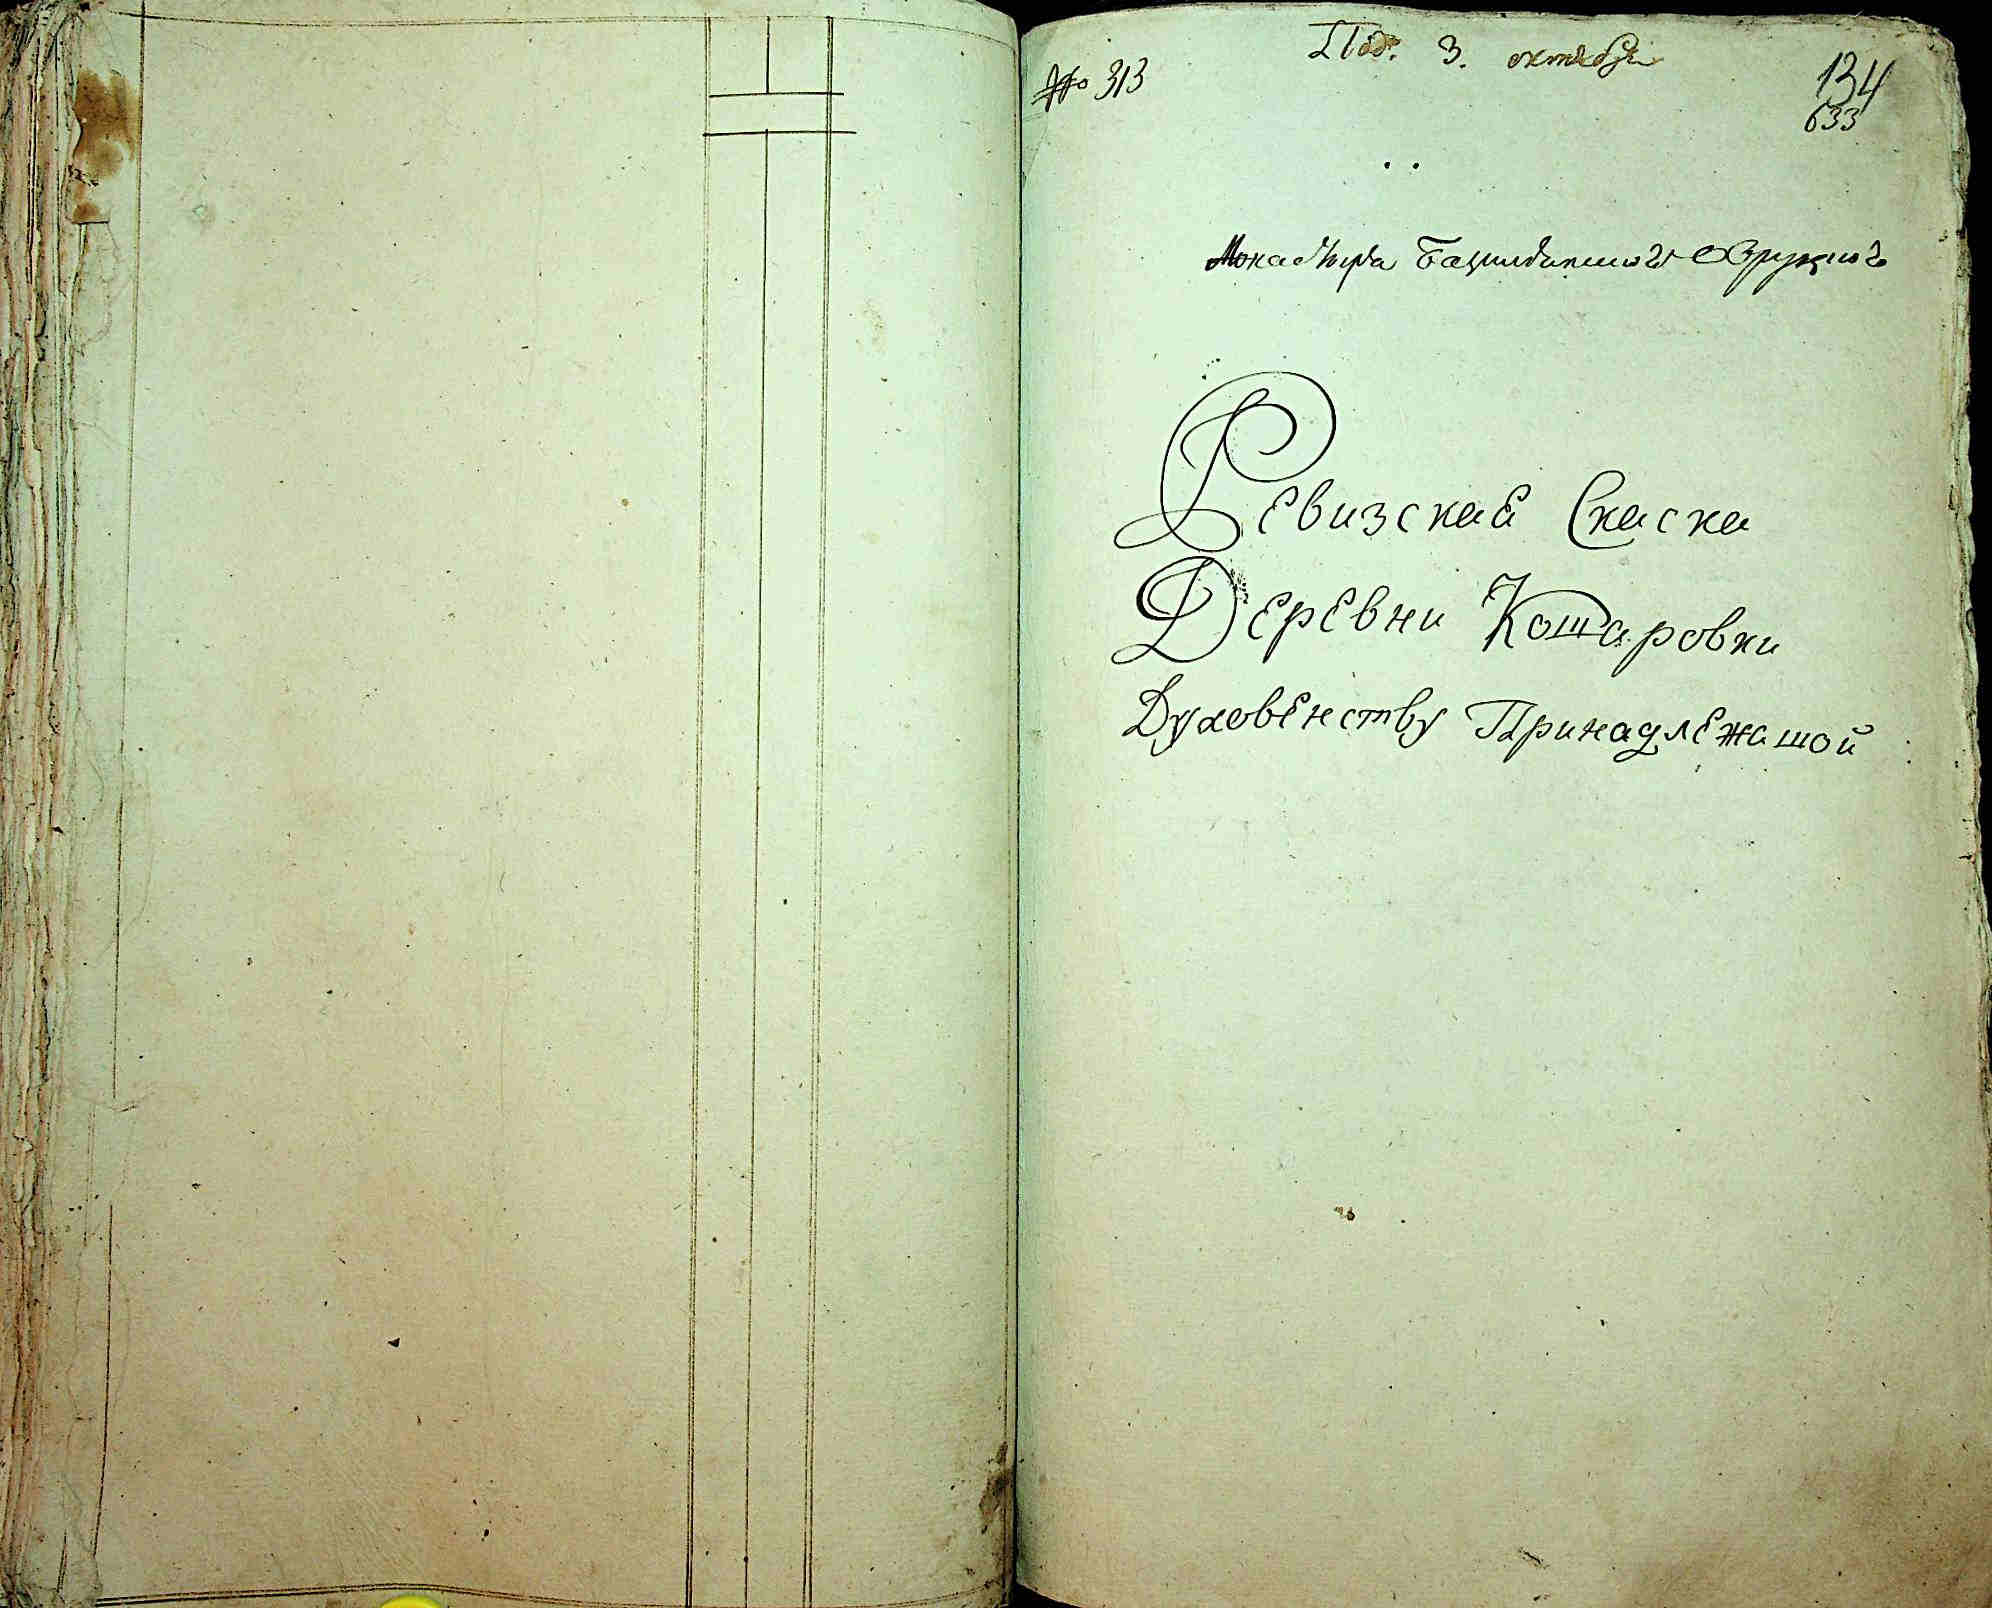 Под. 3. октября
№ 313
134
633
Монастыра Базилианског Овруцког
Ревизская Скаска
Деревни Кошаровки
Духовенству Принадлежашой